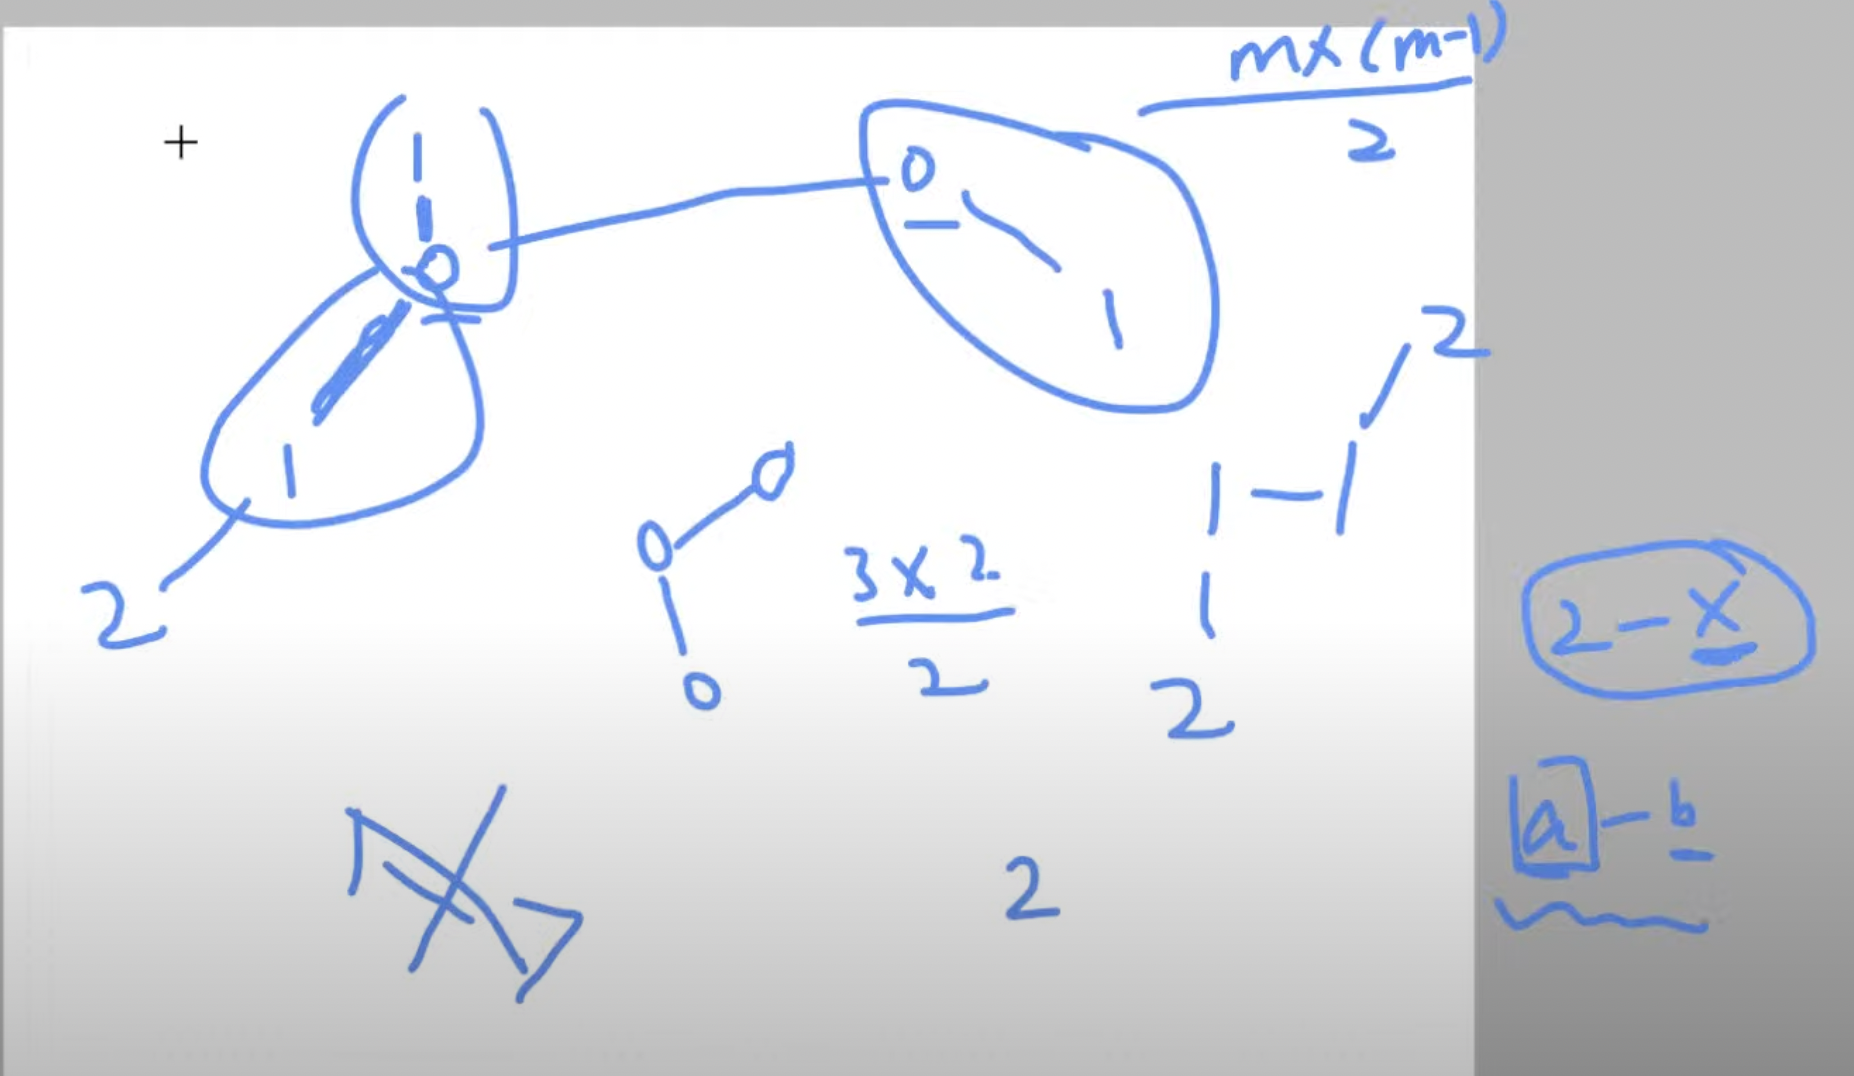 m×(m-1)
2
1
0
0
1
2
1
0
0
0
3×2
2
1
1
2
2
2-x
a-b
2